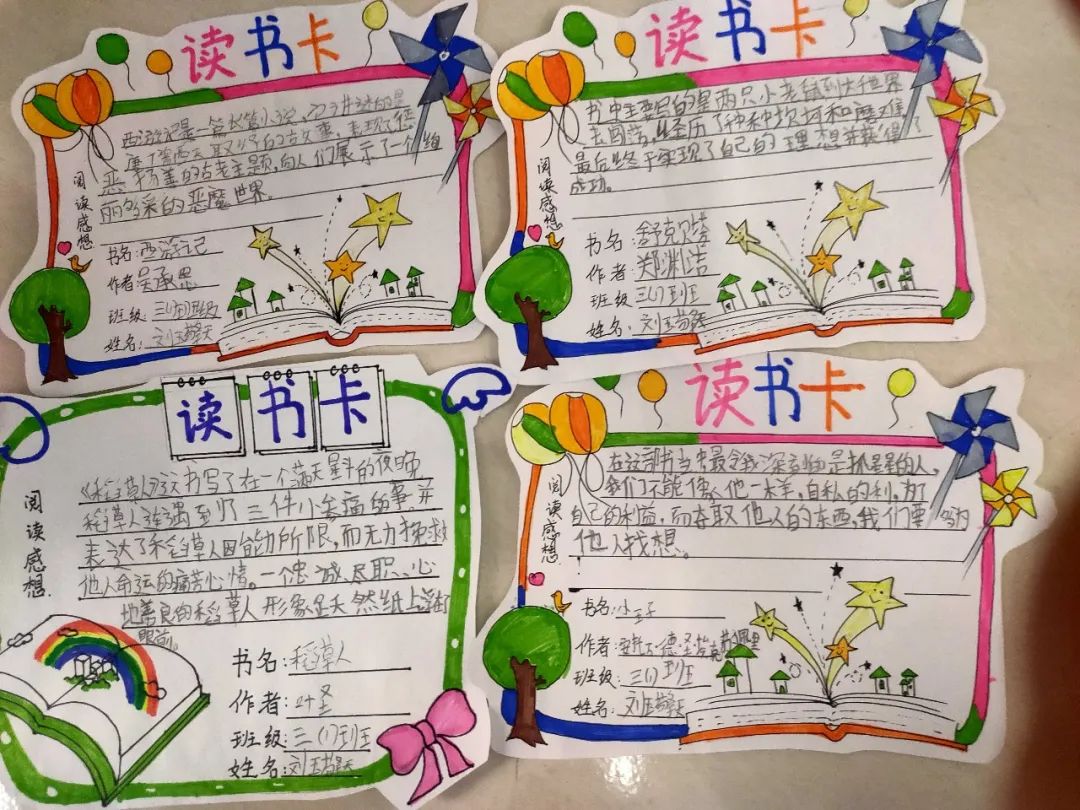 读书卡
西游记是一篇长篇小说,
唐僧西天取经的故事,表现了惩
恶扬善的古老主题,向人们展示了一个绚
丽多采的恶魔世界。
阅读感想
书名:西游记
作者:吴承恩
班级:三(1)班
姓名:刘玉
读书卡
书中主要写的是两只小老鼠到大世界
去闯荡,经历了种种坎坷和磨难
最后终于实现了自己的理想并获得了
成功。
阅读感想
书名:舒克贝塔
作者:郑渊洁
班级:三(1)班
姓名:刘玉
读书卡
《稻草人》这本书写了在一个满天星斗的夜晚
稻草人连遇到了三件小幸福的事,并
表达了稻草人因能力所限,而无力挽救
他人命运的痛苦心情。一个忠诚、尽职、心
地善良的稻草人形象跃然纸上
眼前。
阅读感想
书名:稻草人
作者:叶圣
班级:三(1)班
姓名:刘玉
读书卡
在这部书当中最令我深有的是抓星星的人,
我们不能像他一样,自私的利。为了
自己的利益,而夺取他人的东西,我们要为
他人找想。
阅读感想
书名:小王子
作者:德·圣
班级:三(1)班
姓名:刘玉